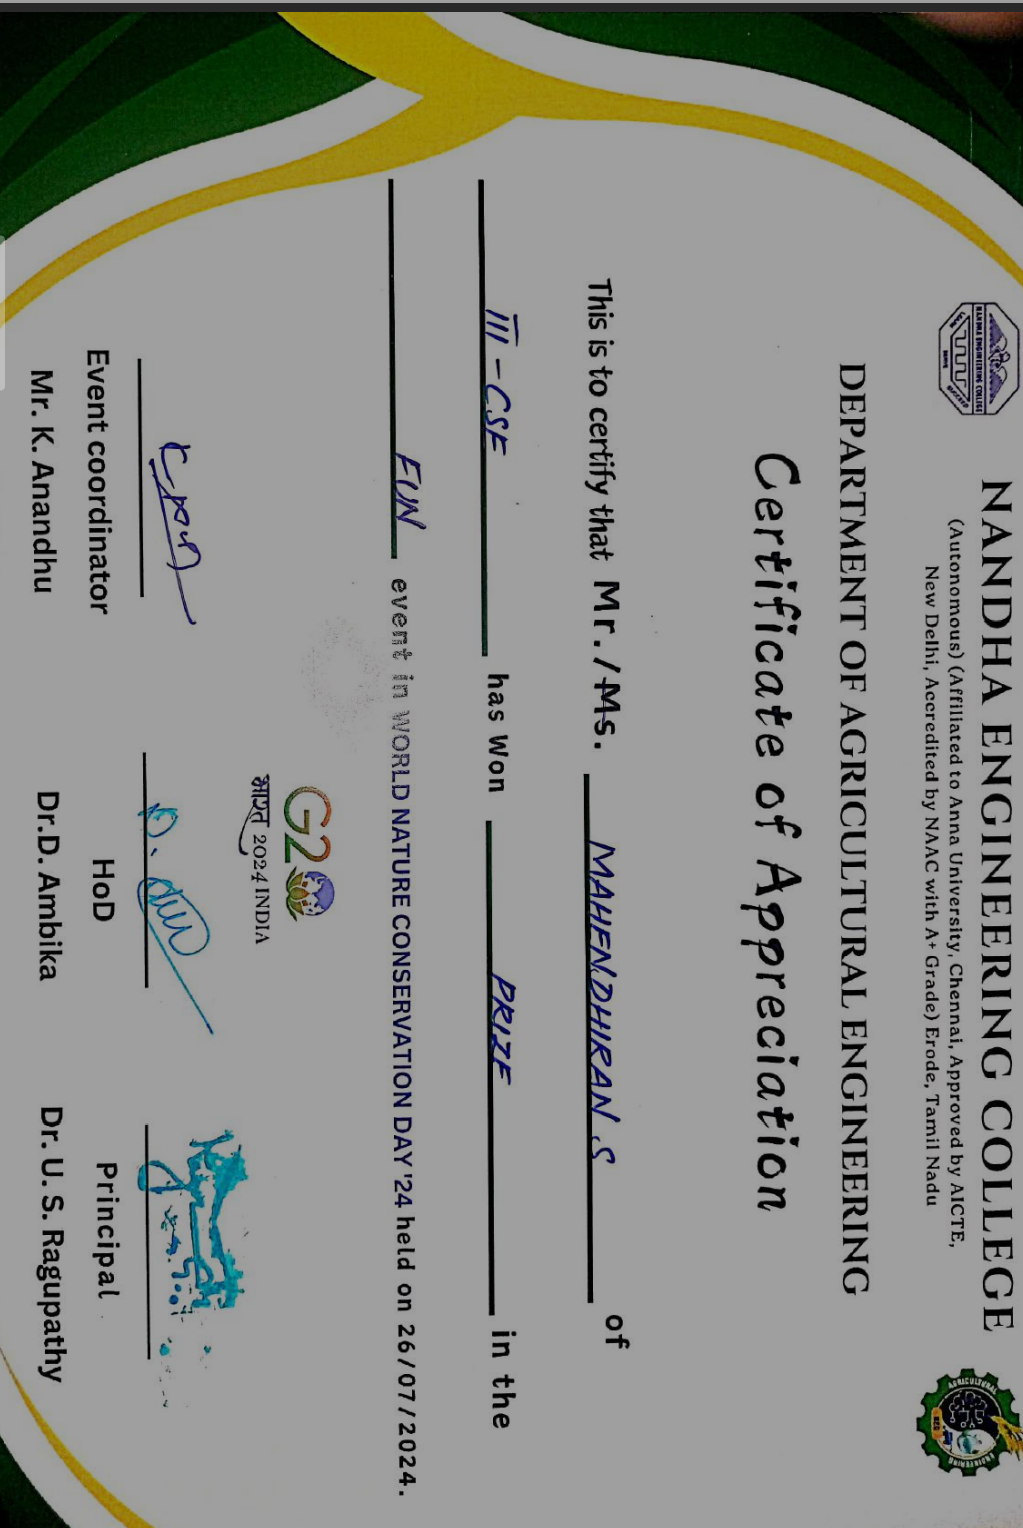 NANDHA ENGINEERING COLLEGE
(Autonomous) (Affiliated to Anna University, Chennai, Approved by AICTE,
New Delhi, Accredited by NAAC with A+ Grade) Erode, Tamil Nadu
NANDHA ENGINEERING COLLEGE
AGRICULTURAL
ENGINEERING
DEPARTMENT OF AGRICULTURAL ENGINEERING
Certificate of Appreciation
This is to certify that Mr./Ms. MAHENDHIRAN S of
III - CSE has Won PRIZE in the
FUN event in WORLD NATURE CONSERVATION DAY'24 held on 26/07/2024.
G20
भारत 2024 INDIA
Event coordinator
Mr. K. Anandhu
HoD
Dr.D. Ambika
Principal
Dr. U. S. Ragupathy